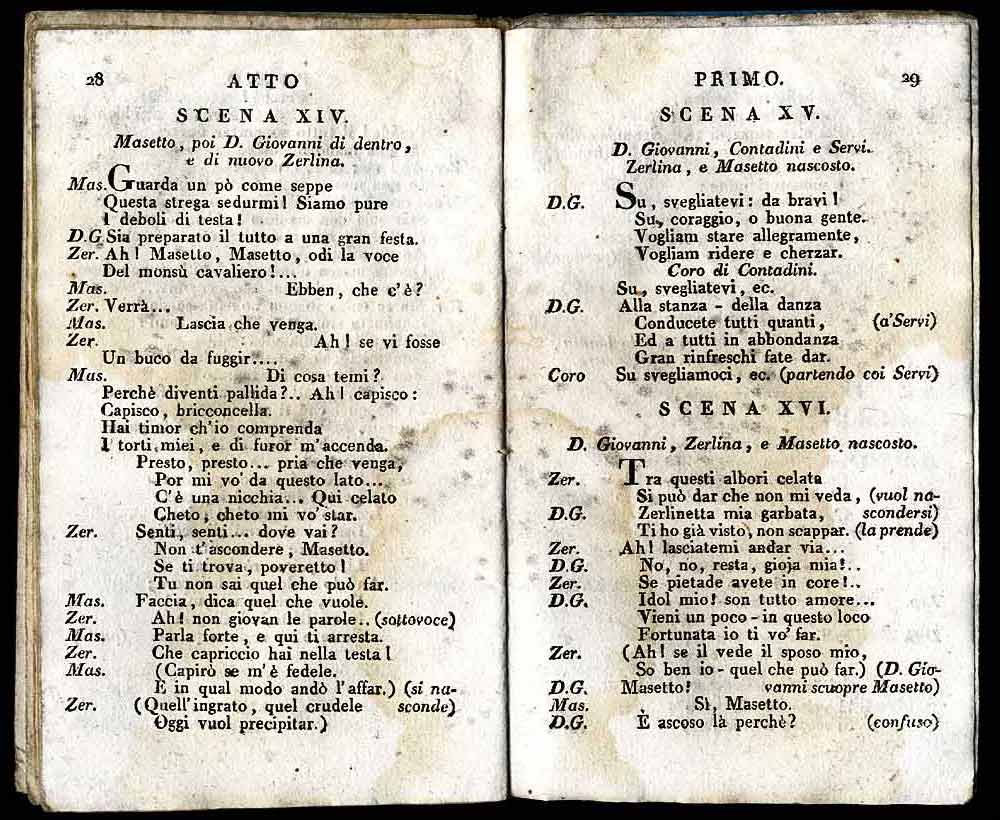 28 ATTO
SCENA XIV.
Masetto, poi D. Giovanni di dentro,
e di nuovo Zerlina.
Mas. Guarda un pò come seppe
Questa strega sedurmi! Siamo pure
I deboli di testa!
D.G Sia preparato il tutto a una gran festa.
Zer. Ah! Masetto, Masetto, odi la voce
Del monsù cavaliero!...
Mas. Ebben, che c'è?
Zer. Verrà...
Mas. Lascia che venga.
Zer. Ah! se vi fosse
Un buco da fuggir....
Mas. Di cosa temi?
Perchè diventi pallida?.. Ah! capisco:
Capisco, bricconcella.
Hai timor ch'io comprenda
I torti miei, e di furor m'accenda.
Presto, presto... pria che venga,
Por mi vo' da questo lato...
C'è una nicchia... Qui celato
Cheto, cheto mi vo' star.
Zer. Senti, senti... dove vai?
Non t'ascondere, Masetto.
Se ti trova, poveretto!
Tu non sai quel che può far.
Mas. Faccia, dica quel che vuole.
Zer. Ah! non giovan le parole.. (sottovoce)
Mas. Parla forte, e qui ti arresta.
Zer. Che capriccio hai nella testa!
Mas. (Capirò se m'è fedele.
E in qual modo andò l'affar.) (si na-
Zer. (Quell'ingrato, quel crudele sconde)
Oggi vuol precipitar.)
PRIMO. 29
SCENA XV.
D. Giovanni, Contadini e Servi.
Zerlina, e Masetto nascosto.
D.G. Su, svegliatevi: da bravi!
Su, coraggio, o buona gente.
Vogliam stare allegramente,
Vogliam ridere e cherzar.
Coro di Contadini.
Su, svegliatevi, ec.
D.G. Alla stanza - della danza
Conducete tutti quanti, (a'Servi)
Ed a tutti in abbondanza
Gran rinfreschi fate dar.
Coro Su svegliamoci, ec. (partendo coi Servi)
SCENA XVI.
D. Giovanni, Zerlina, e Masetto nascosto.
Zer. Tra questi albori celata
Si può dar che non mi veda, (vuol na-
D.G. Zerlinetta mia garbata, scondersi)
Ti ho già visto, non scappar. (la prende)
Zer. Ah! lasciatemi andar via...
D.G. No, no, resta, gioja mia!..
Zer. Se pietade avete in core!..
D.G. Idol mio! son tutto amore...
Vieni un poco - in questo loco
Fortunata io ti vo' far.
Zer. (Ah! se il vede il sposo mio,
So ben io - quel che può far.) (D. Gio-
D.G. Masetto! vanni scuopre Masetto)
Mas. Sì, Masetto.
D.G. È ascoso là perchè? (confuso)